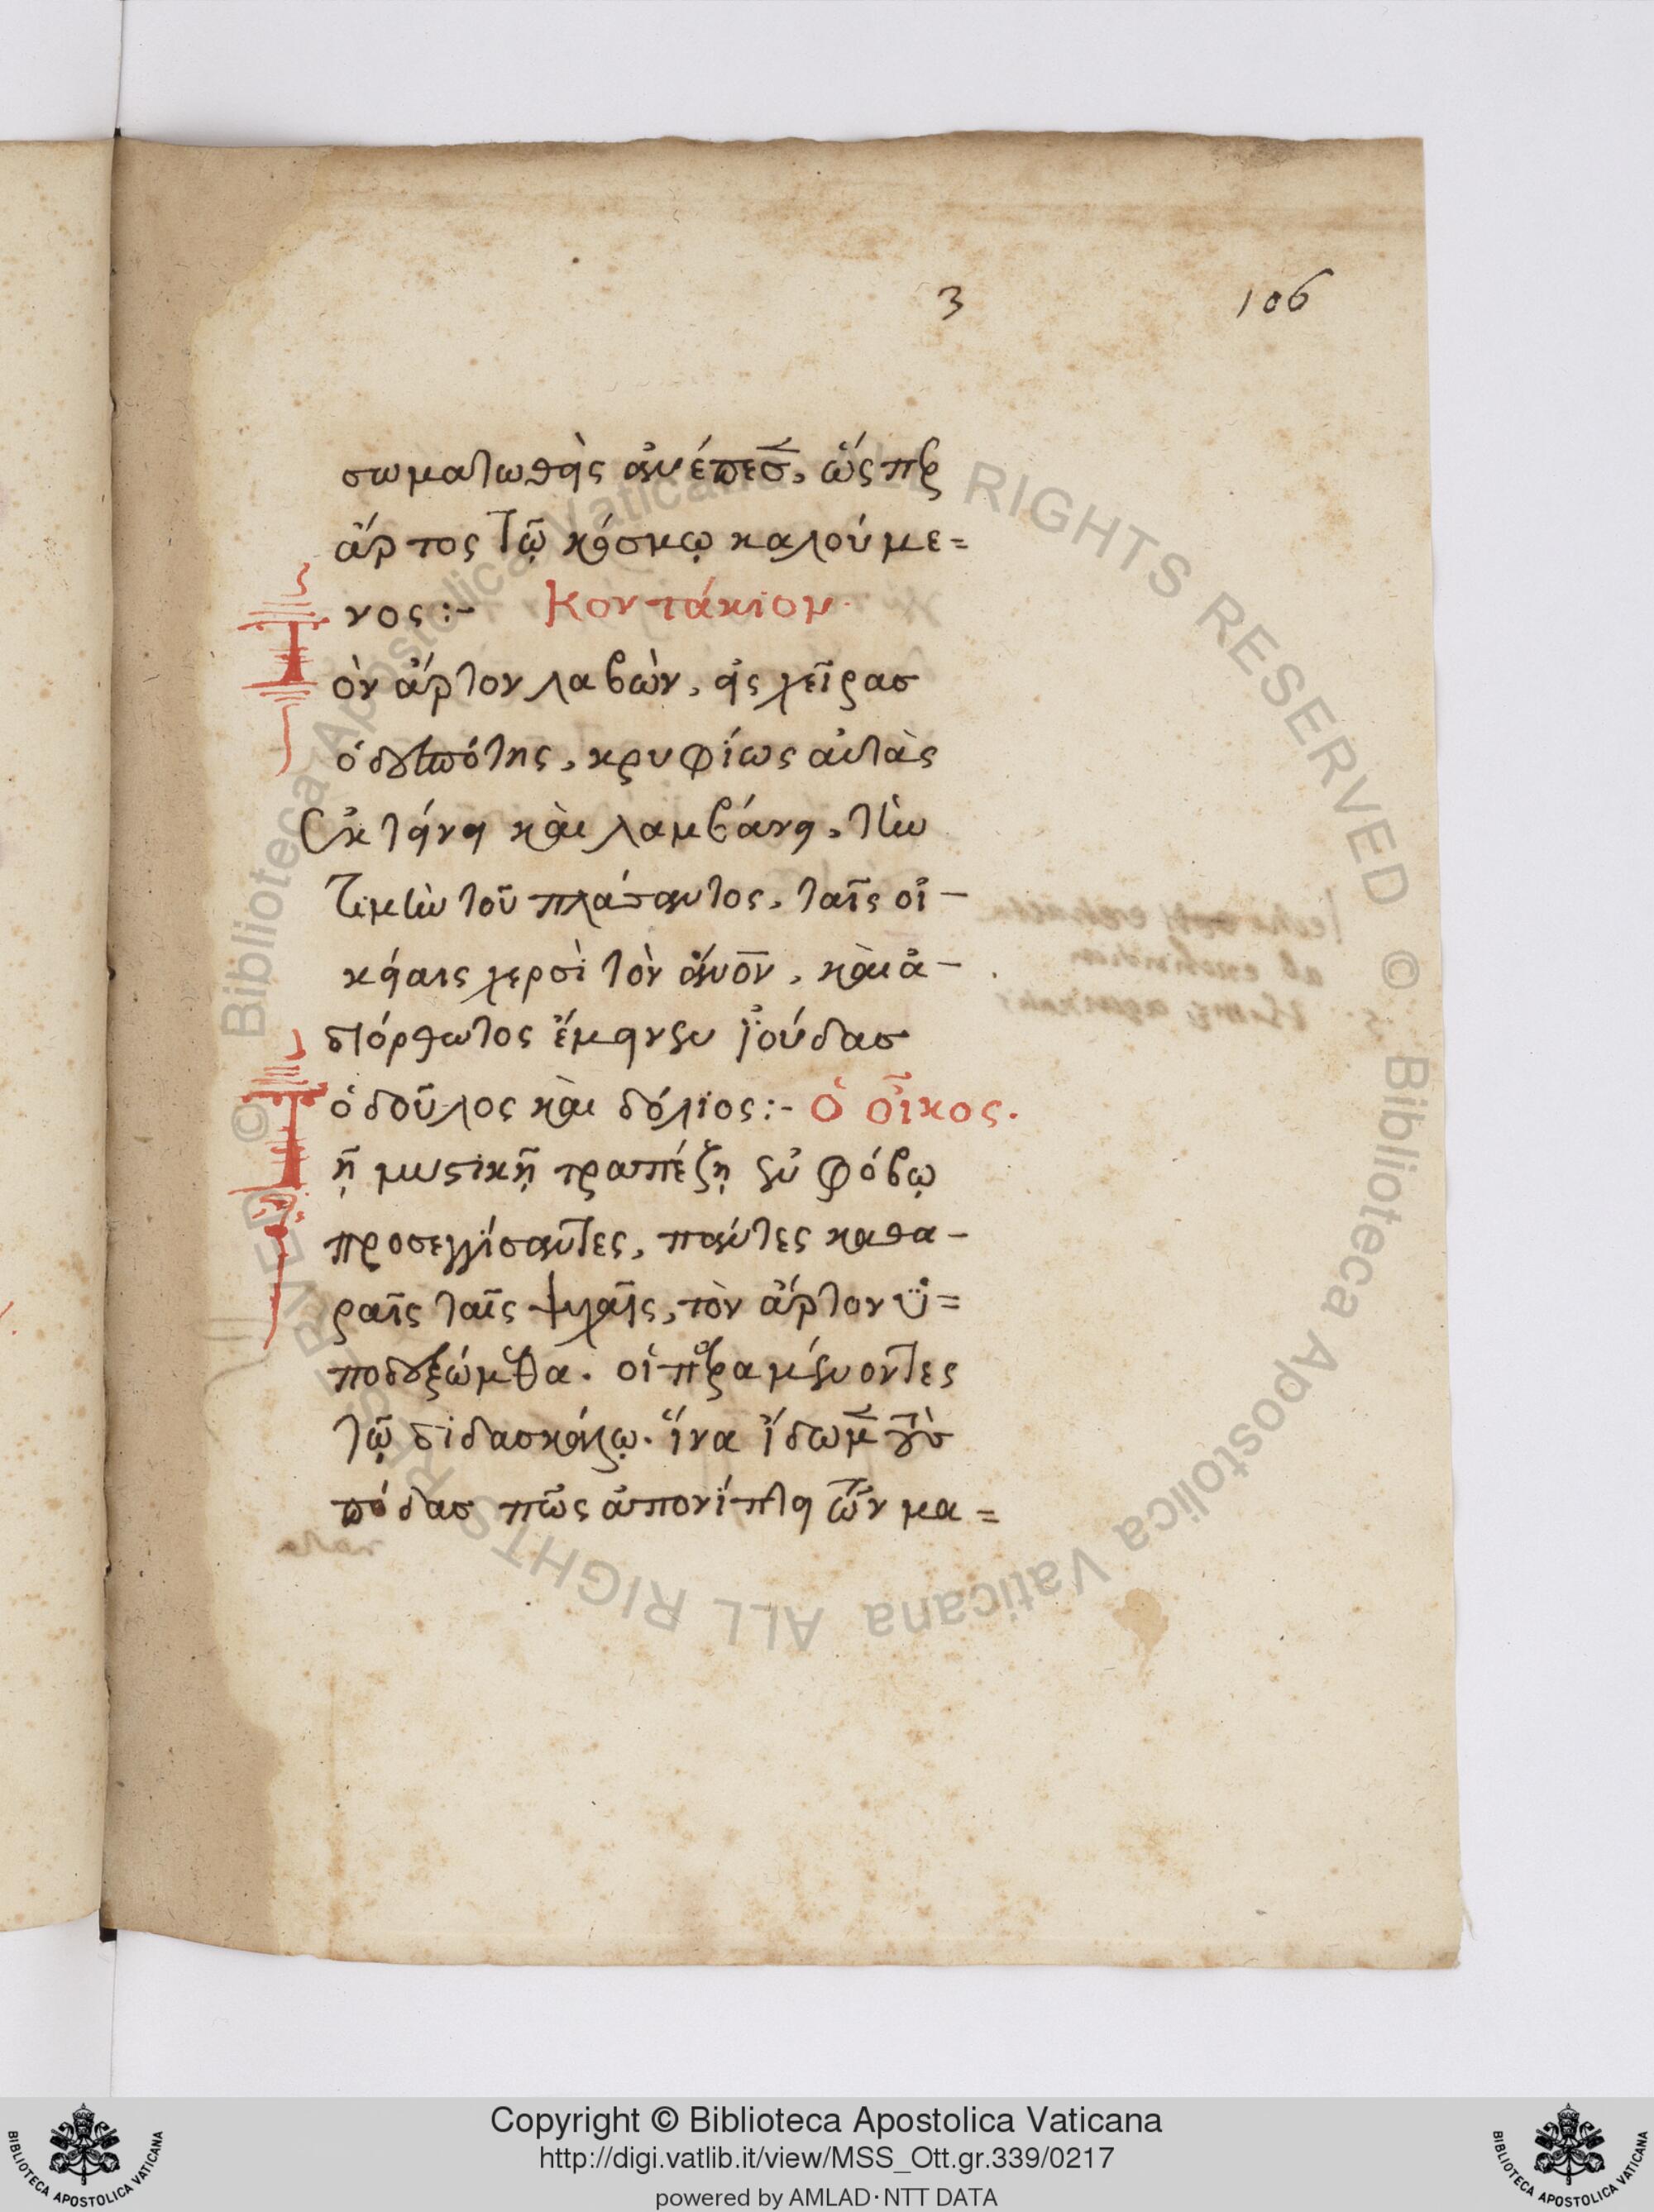 3 106
σωματωθεὶς ἀνέπεσ, ὥσπερ
ἄρτος τῷ κόσμῳ καλούμε=
νος:- Κοντάκιον.
Τὸν ἄρτον λαβὼν, εἰς χεῖρασ
ὁ δεσπότης, κρυφίως αὐτὰς
ἐκτείνει καὶ λαμβάνει, τὴν
τιμὴν τοῦ πλάσαντος, ταῖς οἰ-
κείαις χερσὶ τὸν ἀνον, καὶ ἀ-
διόρθωτος ἔμεινεν ἰούδασ
ὁ δοῦλος καὶ δόλιος:- ὁ οἶκος.
Τῇ μυστικῇ τραπέζῃ ἐν φόβῳ
προσεγγίσαντες, πάντες καθα-
ραῖς ταῖς ψυχαῖς, τὸν ἄρτον ὑ=
ποδεξώμεθα. οἱ παραμένοντες
τῷ διδασκάλῳ. ἵνα ἴδωμεν τοὺσ
πόδασ πῶς ἀπονίπτει τῶν μα=
Copyright © Biblioteca Apostolica Vaticana
http://digi.vatlib.it/view/MSS_Ott.gr.339/0217
powered by AMLAD·NTT DATA
BIBLIOTECA APOSTOLICA VATICANA
BIBLIOTECA APOSTOLICA VATICANA
© Biblioteca Apostolica Vaticana ALL RIGHTS RESERVED
© Biblioteca Apostolica Vaticana ALL RIGHTS RESERVED